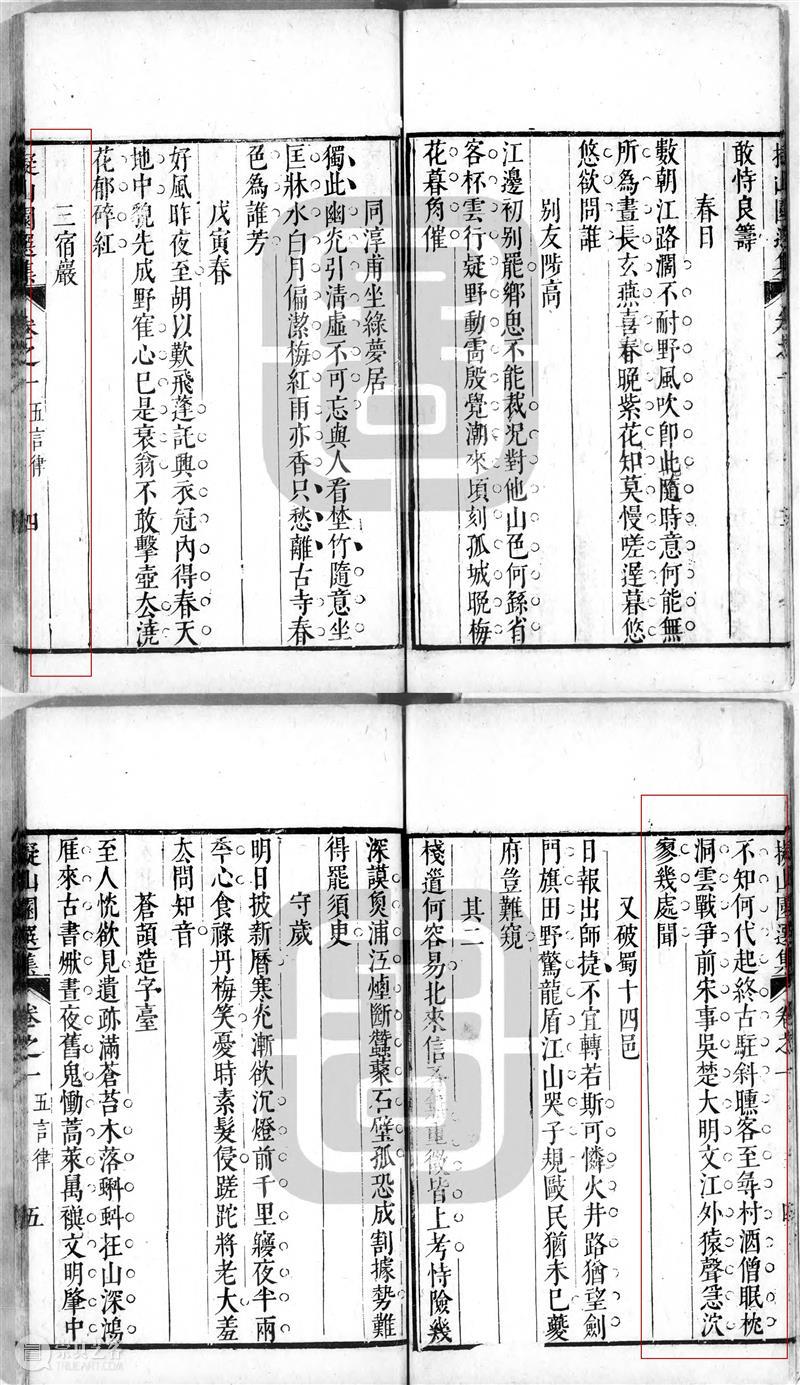 擬山園選集 卷之一
敢恃良籌
春日
數朝江路濶不耐野風吹卽此隨時意何能無
所為晝長玄燕喜春晚紫花知莫慢嗟遲暮悠
悠欲問誰
別友陟高
江邊初別罷鄉思不能裁况對他山色何繇省
客杯雲行疑野動雷殷覺潮來頃刻孤城晚梅
花暮角催
同淳甫坐綠夢居
獨此幽光引清虛不可忘與人看埜竹隨意坐
匡牀水白月偏潔梅紅雨亦香只愁離古寺春
色為誰芳
戊寅春
好風昨夜至胡以歎飛蓬託興衣冠內得春天
地中貌先成野寉心已是衰翁不敢擊壺厺澆
花郁碎紅
三宿巖
擬山園選集 卷之一 五言律 四
擬山園選集 卷之一 四
不知何代起終古駐斜曛客至尋村酒僧眠枕
洞雲戰爭前宋事吳楚大明文江外猿聲急泬
寥幾處聞
又破蜀十四邑
日報出師捷不宜轉若斯可憐火井路猶望劍
門旗田野驚龍盾江山哭子規毆民猶未已夔
府豈難窺
其二
棧道何容易北來信重徵皆上考恃險幾
深謨負浦江煙斷蠶叢石壁孤恐成割據勢難
得罷須臾
守歲
明日披新曆寒光漸欲沉燈前千里夢夜半兩
年心食祿丹梅笑憂時素髮侵蹉跎將老大羞
厺問知音
蒼頡造字臺
至人恍欲見遺跡滿蒼苔木落蝌蚪在山深鴻
雁來古書愁晝夜舊鬼慟蒿萊萬禩文明肇中
擬山園選集 卷之一 五言律 五